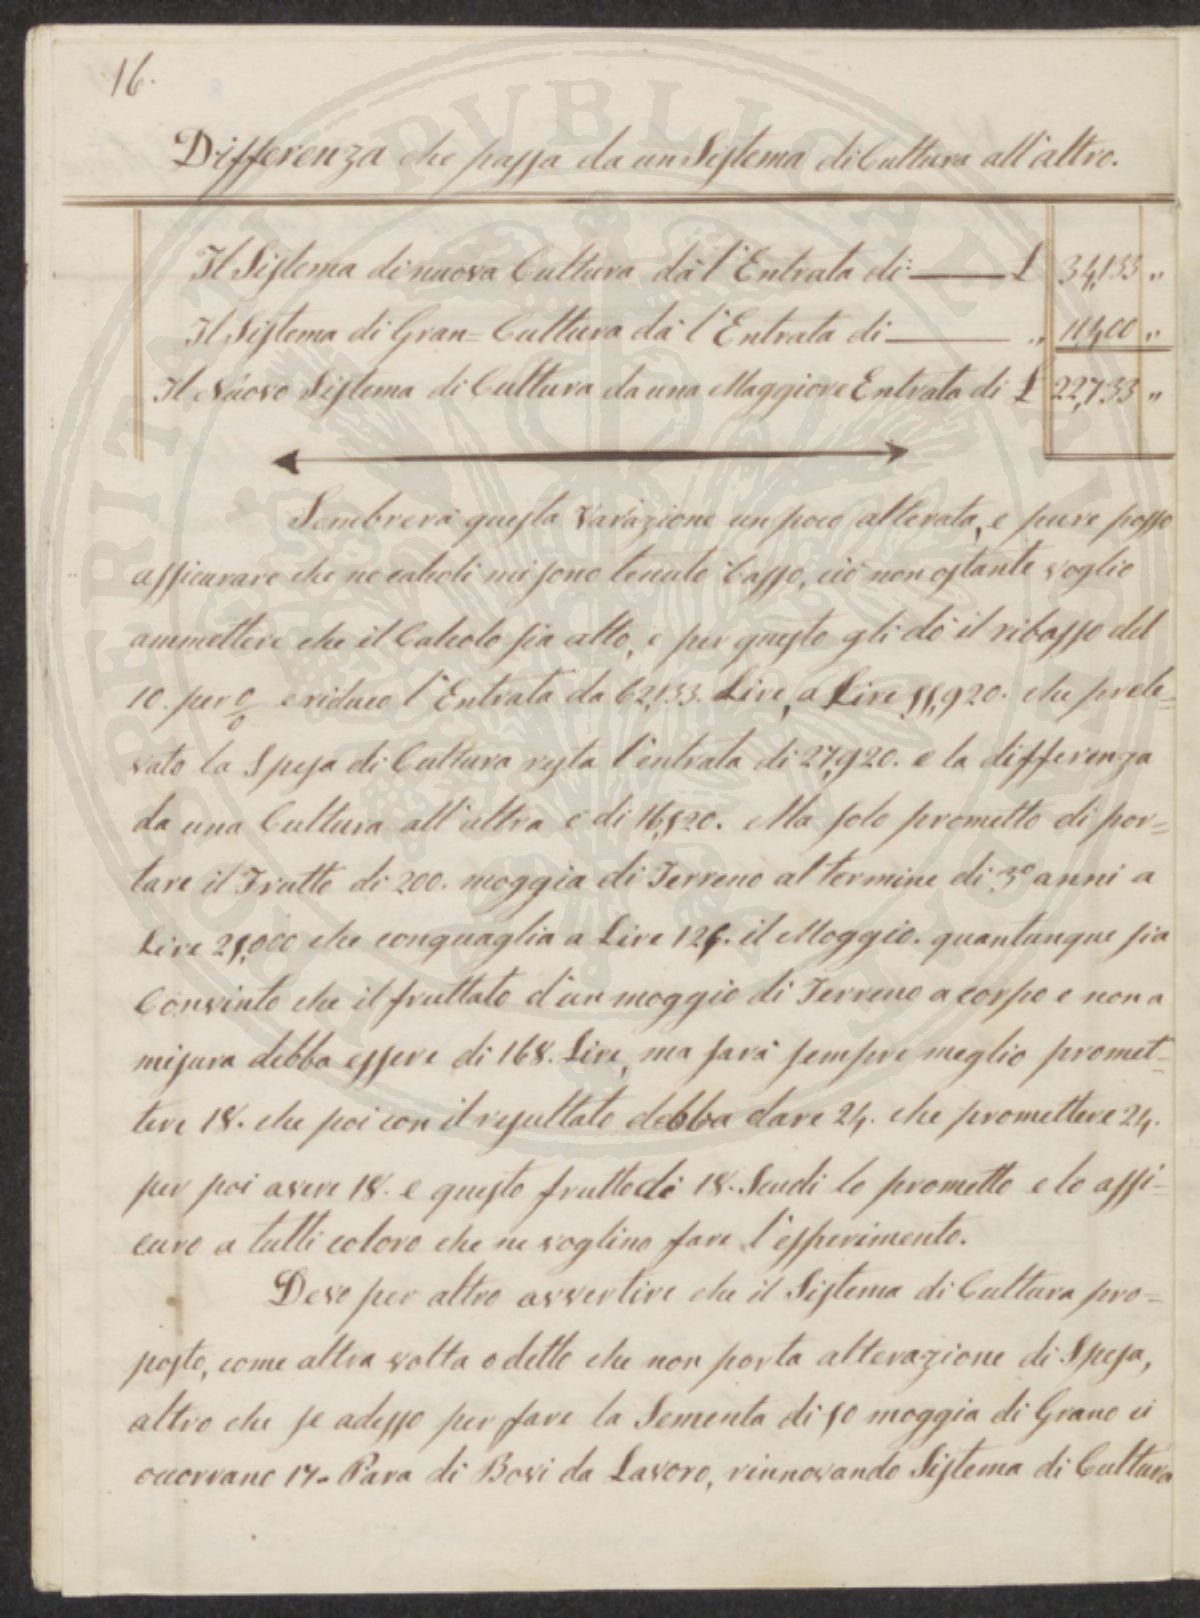 16.
Differenza che passa da un Sistema di Cultura all'altro.
Il Sistema di nuova Cultura dà l'Entrata di: £ 34,133 „
Il Sistema di Gran=Cultura dà l'Entrata di „ 11,400 „
Il Nuovo Sistema di Cultura da una Maggiore Entrata di £ 22,733 „
Sembrerà questa Variazione un poco alterata, e pure posso
assicurare che ne calcoli mi sono tenuto basso, ciò non ostante voglio
ammettere che il Calcolo sia alto, e per questo gli dò il ribasso del
10. per % e riduco l'Entrata da 62,133. Lire, a Lire 55,920. che prele=
vato la Spesa di Cultura resta l'entrata di 27,920. e la differenza
da una Cultura all'altra è di 16,520. Ma solo prometto di por=
tare il Frutto di 200. moggia di Terreno al termine di 3º anni a
Lire 25,000 che conguaglia a Lire 126. il Moggio. quantunque sia
Convinto che il fruttato d'un moggio di Terreno a corpo e non a
misura debba essere di 168. Lire, ma sarà sempre meglio promet=
tere 18. che poi con il resultato debba dare 24. che promettere 24.
per poi avere 18. e questo frutto di 18. Scudi lo prometto e lo assi=
curo a tutti coloro che ne voglino fare l'esperimento.
Devo per altro avvertire che il Sistema di Cultura pro=
posto, come altra volta o detto che non porta alterazione di Spesa,
altro che se adesso per fare la Sementa di 50 moggia di Grano ci
occorrano 17. Para di Bovi da Lavoro, rinnovando Sistema di Cultura
PUBLICAE